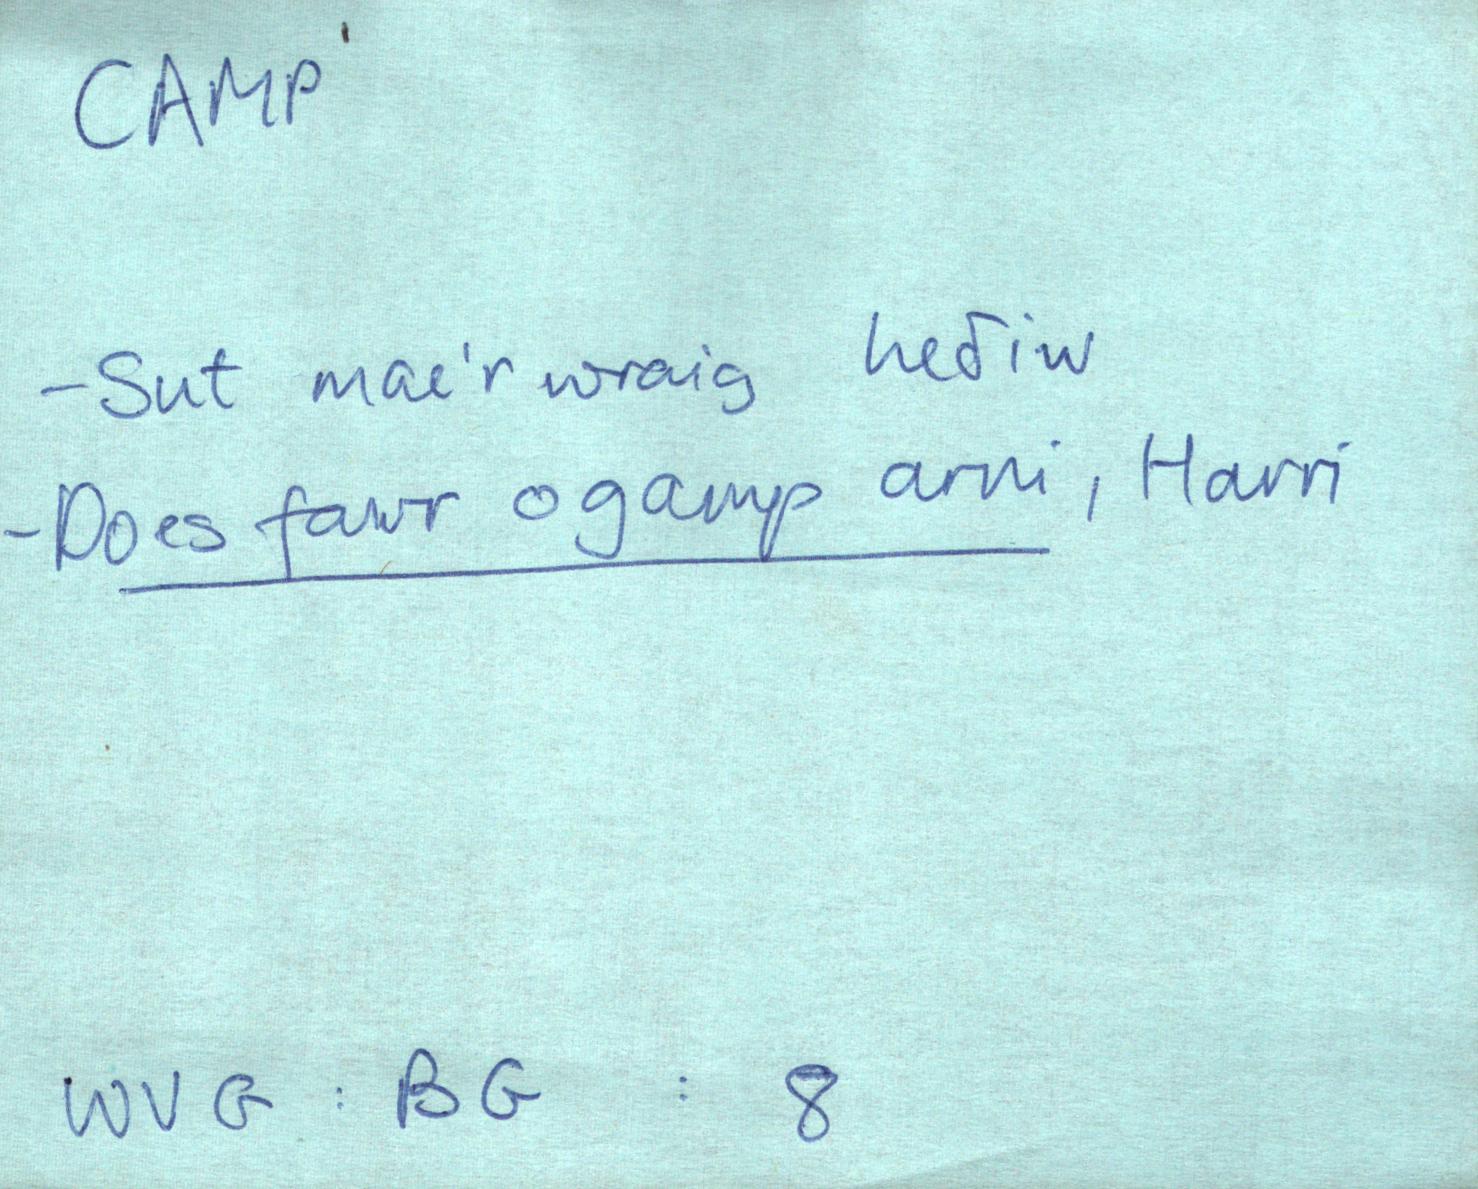 CAMP
- Sut mae'r wraig heðiw
- Does fawr o gamp arni, Harri
WVG : BG : 8